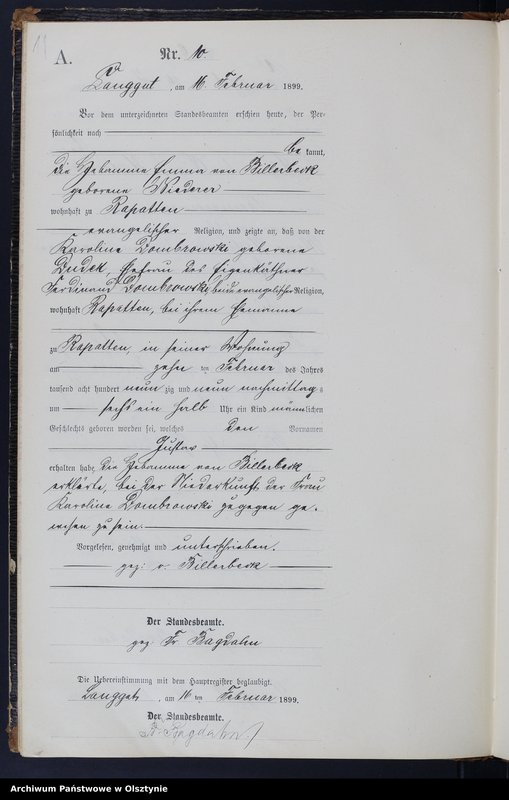 A.
Nr. 10.
Langgut, am 16. Februar 1899.
Vor dem unterzeichneten Standesbeamten erschien heute, der Per-
sönlichkeit nach
be kannt,
die Hebamme Emma von Billerbeck
geborene Niederer
wohnhaft zu Rapatten
evangelischer Religion, und zeigte an, daß von der
Karoline Dombrowski geborene
Dudek, Ehefrau des Eigenkäthner
Ferdinand Dombrowski, beide evangelischer Religion,
wohnhaft Rapatten, bei ihrem Ehemanne
zu Rapatten, in seiner Wohnung
am zehn ten Februar des Jahres
tausend acht hundert neun zig und neun nachmittag s
um sechs ein halb Uhr ein Kind männlichen
Geschlechts geboren worden sei, welches den Vornamen
Gustav
erhalten habe. Die Hebamme von Billerbeck
erklärte, bei der Niederkunft der Frau
Karoline Dombrowski zugegen ge-
wesen zu sein.
Vorgelesen, genehmigt und unterschrieben.
gez: v. Billerbeck
Der Standesbeamte.
gez Fr. Bagdahn
Die Uebereinstimmung mit dem Hauptregister beglaubigt.
Langgut, am 16 ten Februar 1899.
Der Standesbeamte.
Fr. Bagdahn
Archiwum Państwowe w Olsztynie